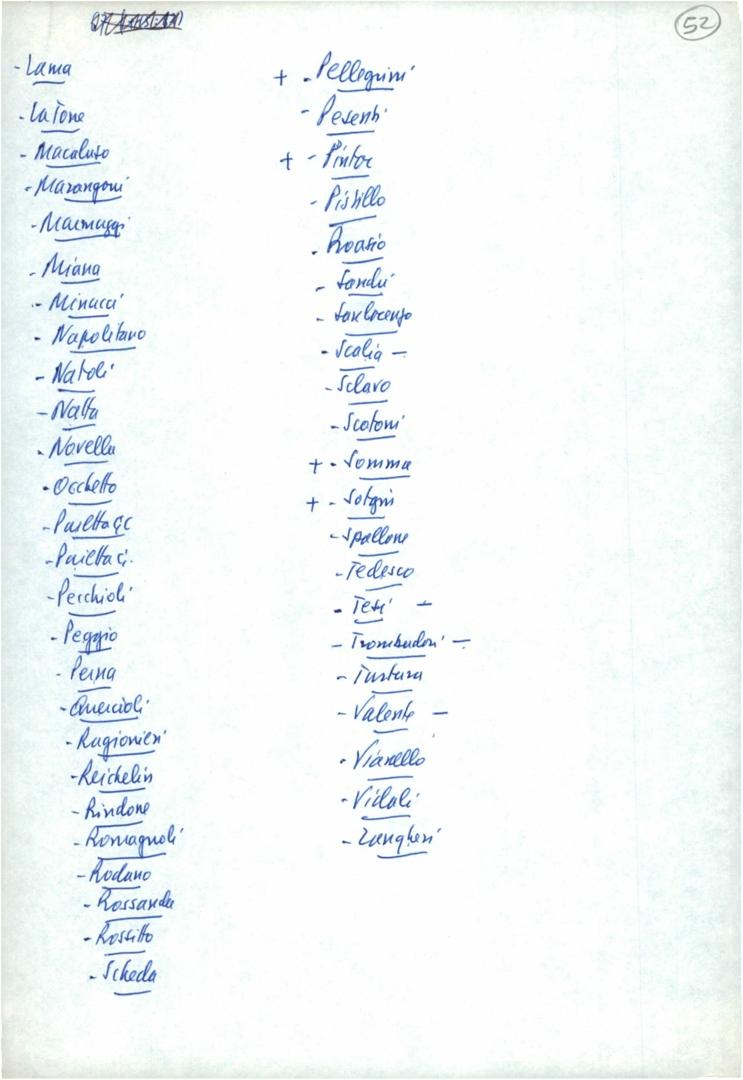 52
- Lama
- La Torre
- Macaluso
- Marangoni
- Marmuggi
- Miana
- Minucci
- Napolitano
- Natoli
- Natta
- Novella
- Occhetto
- Paietta GC
- Paietta G.
- Perchioli
- Peggio
- Perna
- Quercioli
- Ragionieri
- Reichelin
- Rindone
- Romagnoli
- Rodano
- Rossanda
- Rossitto
- Scheda
+ - Pellegrini
- Pesenti
+ - Pintor
- Pistillo
- Roasio
- Sandri
- Sanlorenzo
- Scalia -
- Sclavo
- Scotoni
+ - Somma
+ - Sotgiu
- Spallone
- Tedesco
- Tesi -
- Trombadori -
- Turtura
- Valente -
- Vianello
- Vidali
- Zangheri